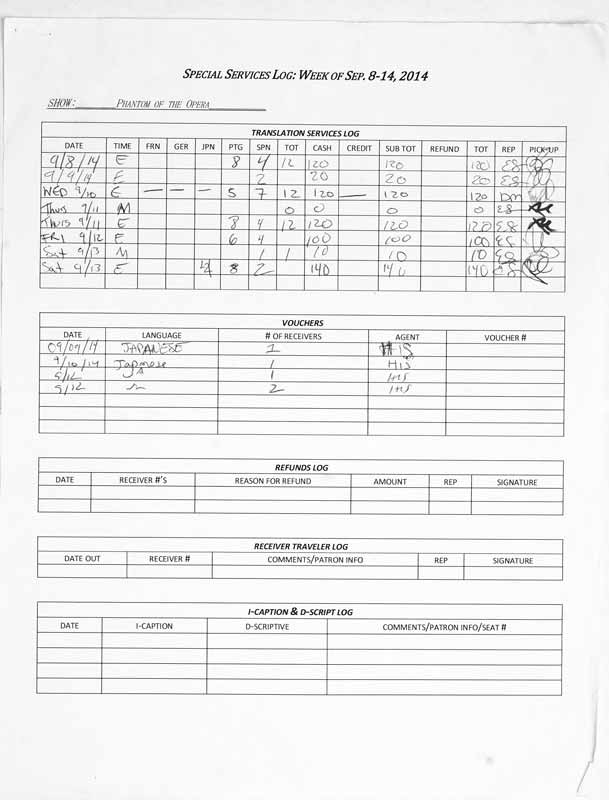 SPECIAL SERVICES LOG: WEEK OF SEP. 8-14, 2014
SHOW: PHANTOM OF THE OPERA
TRANSLATION SERVICES LOG
DATE TIME FRN GER JPN PTG SPN TOT CASH CREDIT SUB TOT REFUND TOT REP PICK-UP
9/8/14 E 8 4 12 120 120 120 ES
9/9/14 E 2 20 20 20 ES
WED 9/10 E — — — 5 7 12 120 — 120 120 DM
Thurs 9/11 M 0 0 0 0 ES
Thurs 9/11 E 8 4 12 120 120 120 ES
FRI 9/12 E 6 4 100 100 100 ES
Sat 9/13 M 1 1 10 10 10 ES
Sat 9/13 E 4 8 2 140 140 140 ES
VOUCHERS
DATE LANGUAGE # OF RECEIVERS AGENT VOUCHER #
09/09/14 JAPANESE 1 HIS
9/10/14 Japanese 1 HIS
9/12 1 HIS
9/12 2 HIS
REFUNDS LOG
DATE RECEIVER #'S REASON FOR REFUND AMOUNT REP SIGNATURE
RECEIVER TRAVELER LOG
DATE OUT RECEIVER # COMMENTS/PATRON INFO REP SIGNATURE
I-CAPTION & D-SCRIPT LOG
DATE I-CAPTION D-SCRIPTIVE COMMENTS/PATRON INFO/SEAT #